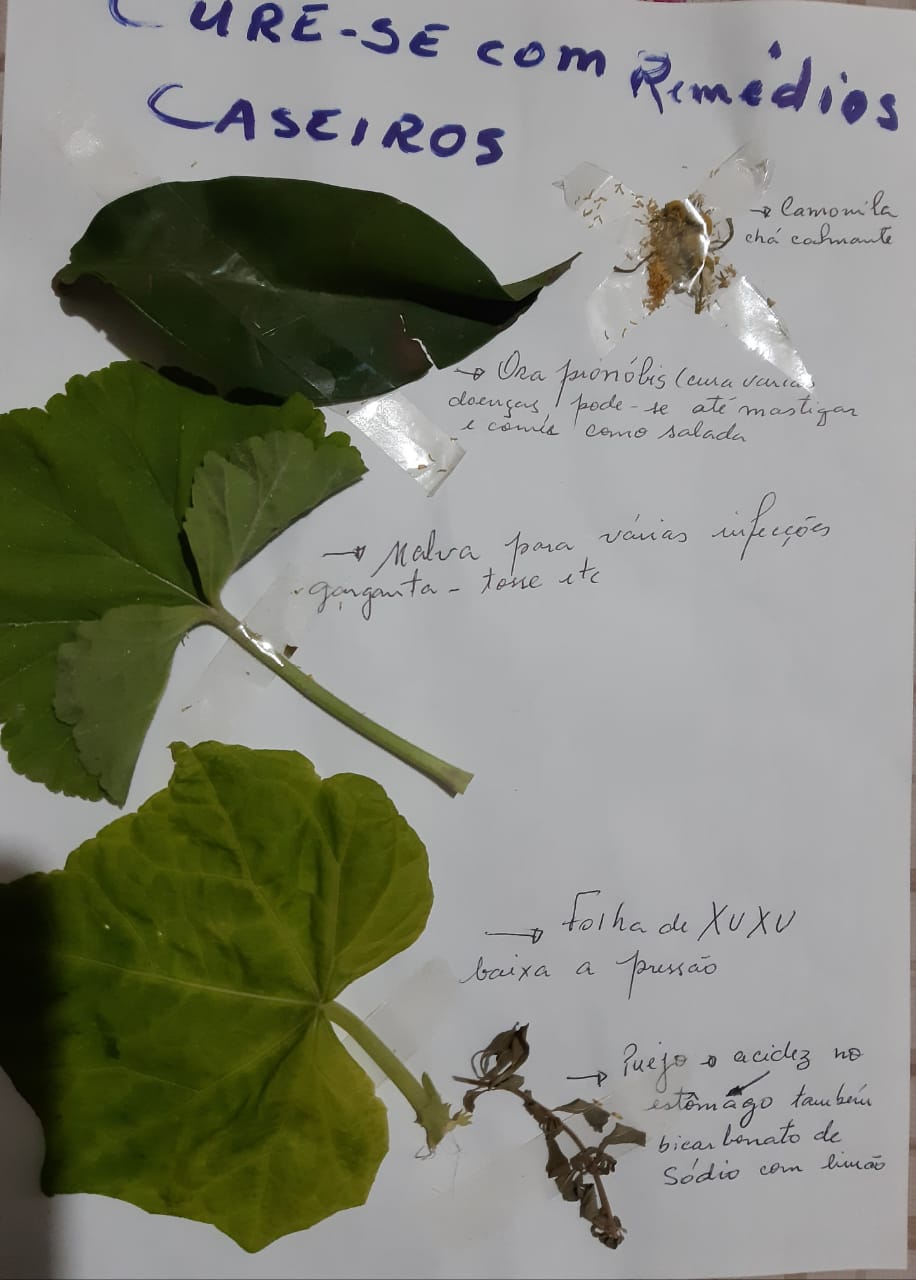 CURE-SE COM Remédios
CASEIROS
→ Camomila
chá calmante
→ Ora pronóbis (cura varias
doenças, pode-se até mastigar
e comer como salada
→ Malva para várias infecções
garganta - tosse etc
→ Folha de XUXU
baixa a pressão
→ Puejo → acidez no
estômago também
bicarbonato de
Sódio com limão